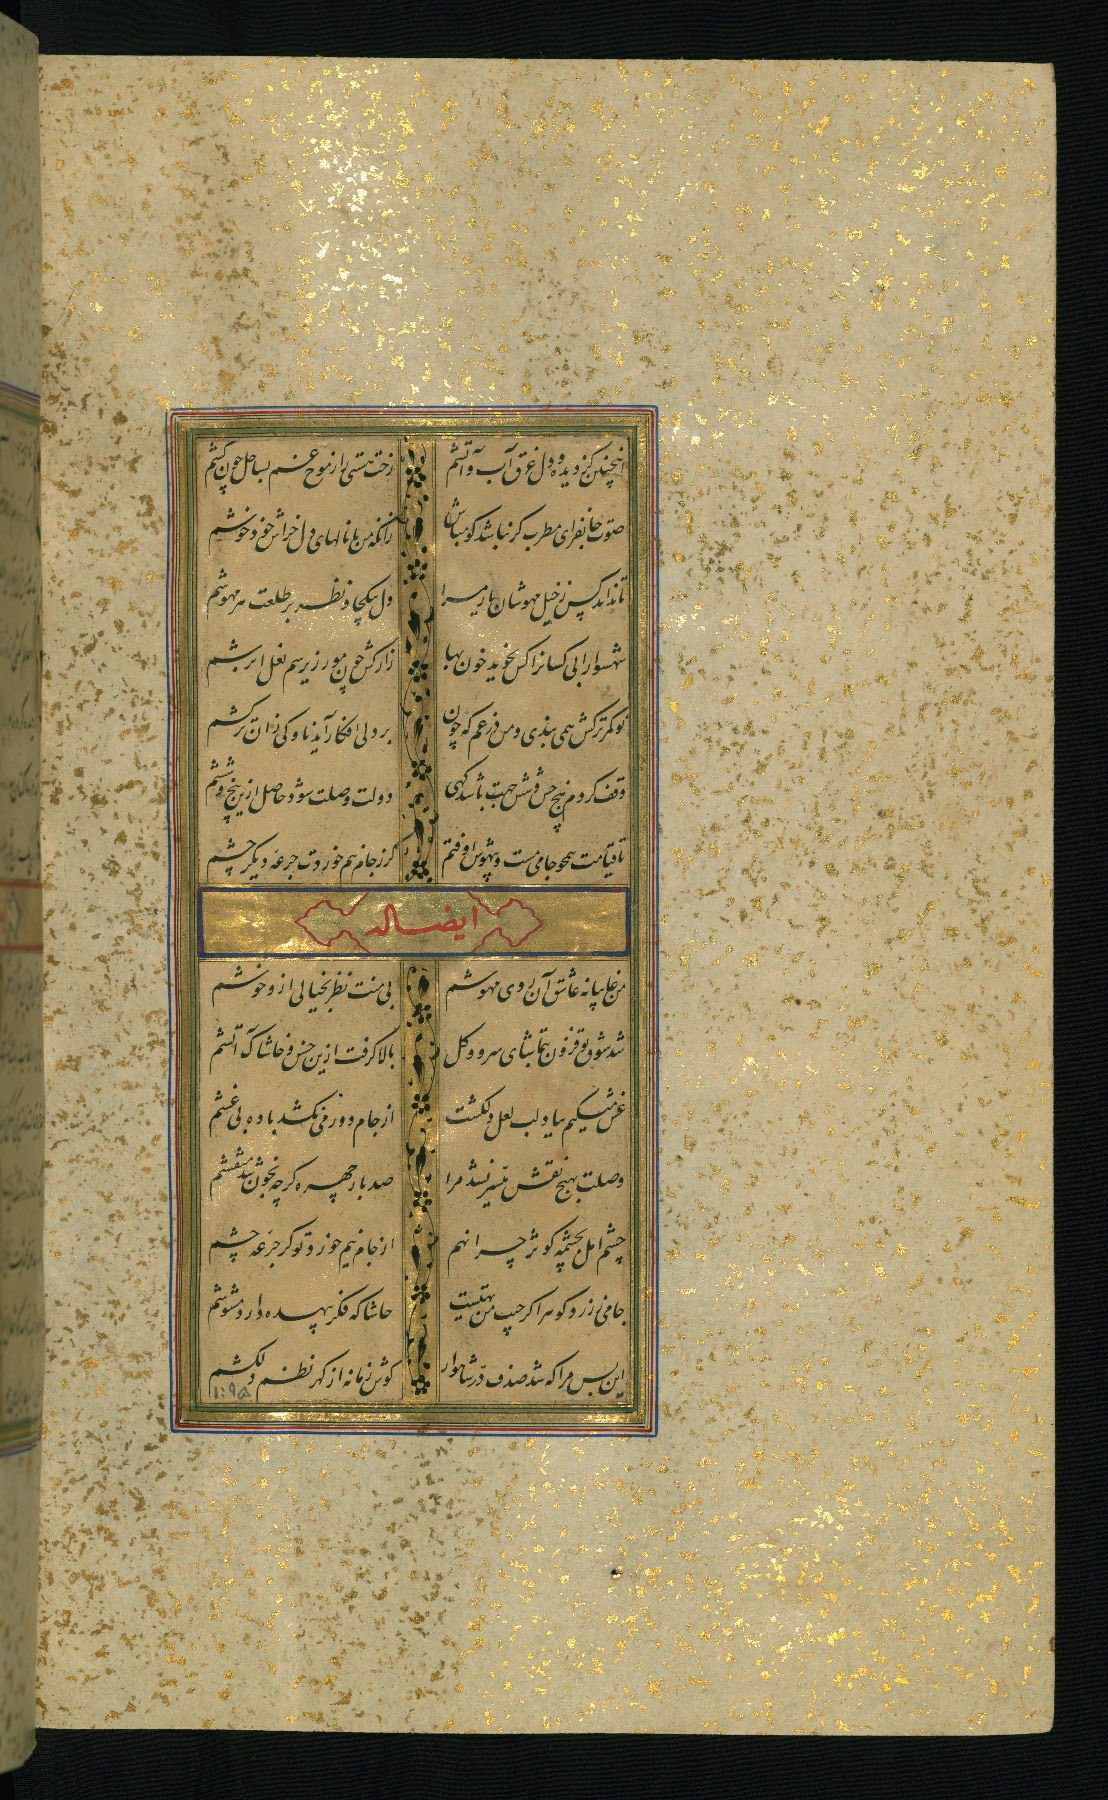 اینچنین کز دیده و دل غرق آب و آتشم    رخت هستی را ز موج غم بساحل چون کشم
صوت جانفزای مطرب گر نباشد گو مباش    زانکه من با نالهای دل خراش خود خوشم
تا نداند کس ز خیل مهوشان یار مرا    دل یکجا و نظر بر طلعت هر مهوشم
شهسوارا بی کسانرا کس نجوید خون بها    زار کش چون مور زیر سم نعل ابرشم
تو کمر ترکش همی بندی و من در غم که چون    بر دلی افکار آید ناوکی زان ترکشم
وقف کردم پنج حس و شش جهت باشد گهی    دولت وصلت شود حاصل ازین پنج و ششم
تا قیامت همچو جامی مست و بیهوش اوفتم    گر ز جام نیم خوردت جرعه دیگر چشم
ایضا له
من غایبانه عاشق آن روی مهوشم    بی منت نظر بخیالی ازو خوشم
شد شوق تو فزون بتماشای سرو و گل    بالا گرفت ازین خس و خاشاک آتشم
غش میکنم بیاد لب لعل دلکشت    از جام دور می نکشد باده بی غشم
وصلت بهیچ نقش میسر نشد مرا    صد بار چهره گرچه بخون شد منقشم
چشم امل بچشمه کوثر چرا نهم    از جام نیم خورد تو گر جرعه چشم
جامی زر و گوهر اگر جیب من تهیست    حاشا که فکر بیهده دارد مشوشم
این بس مرا که شد صدف در شاهوار    گوش زمانه از گهر نظم دلکشم
۱۰۹۵